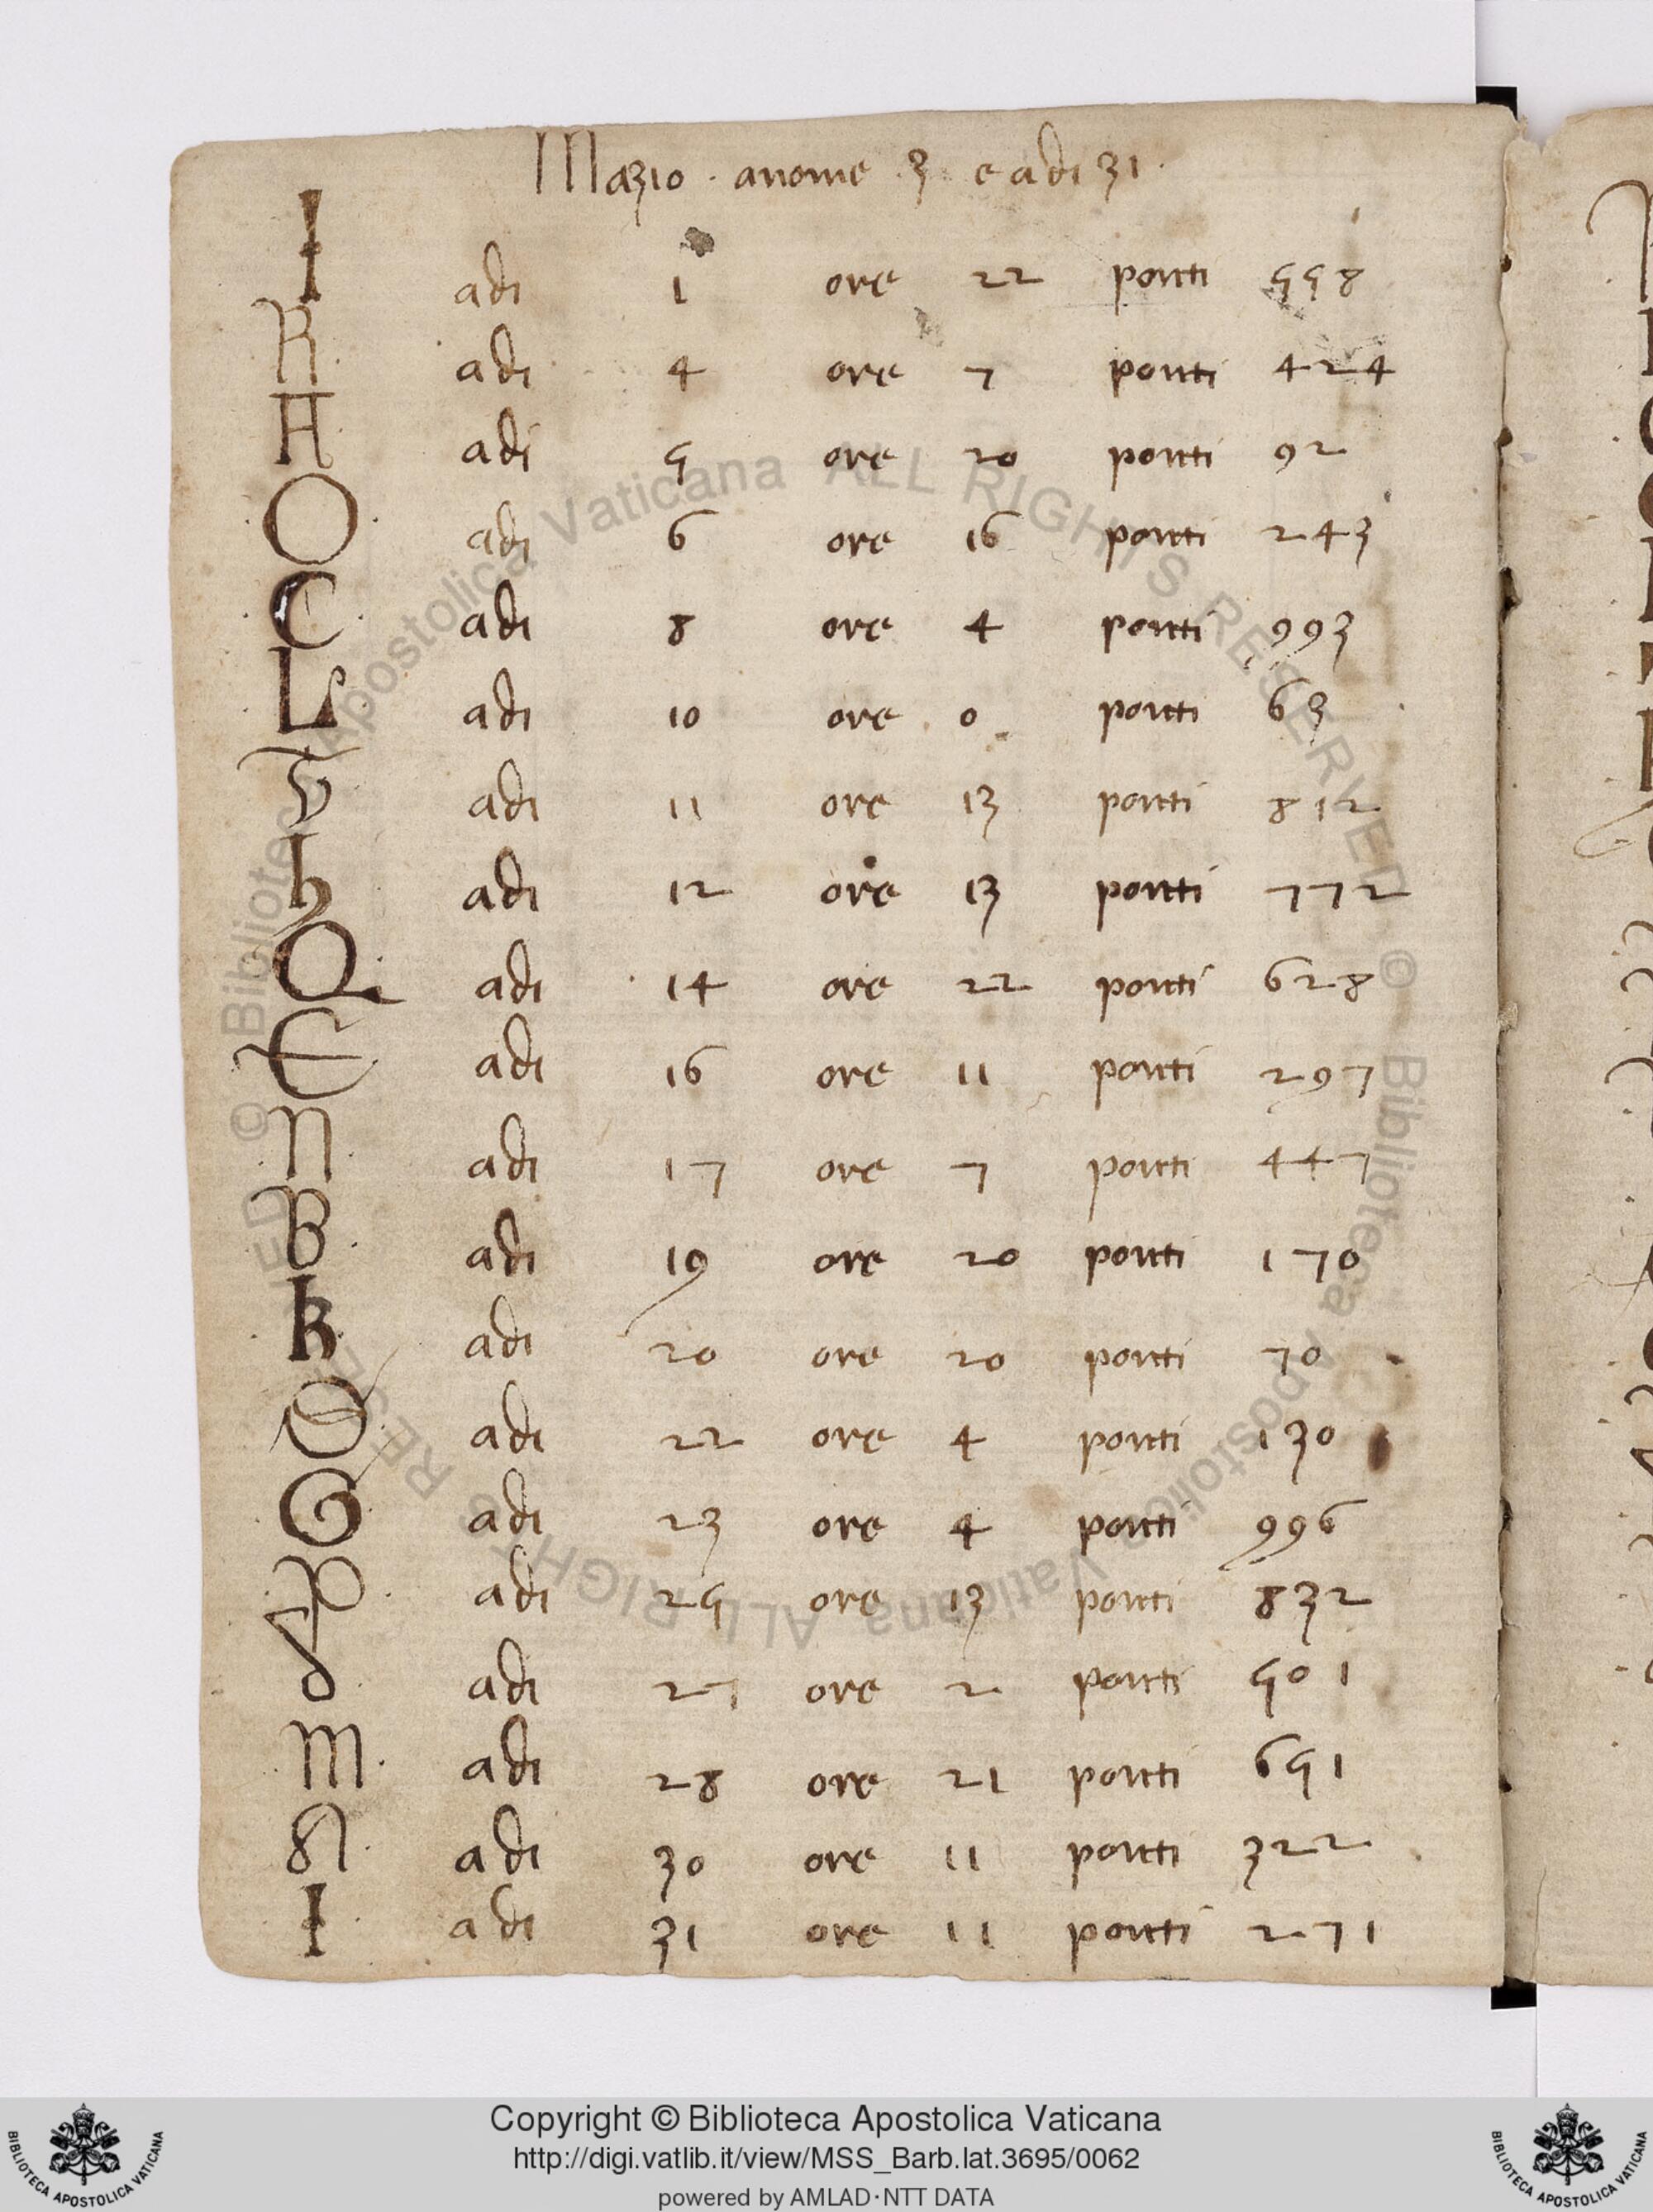 Mazio · anome · 3 · e adi 31 ·
I adi 1 ore 22 ponti 558
R adi 4 ore 7 ponti 424
H adi 5 ore 20 ponti 92
O adi 6 ore 16 ponti 243
C adi 8 ore 4 ponti 993
L adi 10 ore 0 ponti 63
adi 11 ore 13 ponti 812
h adi 12 ore 13 ponti 772
Q adi 14 ore 22 ponti 628
E adi 16 ore 11 ponti 297
N adi 17 ore 7 ponti 447
B adi 19 ore 20 ponti 170
K adi 20 ore 20 ponti 70
adi 22 ore 4 ponti 130
G adi 23 ore 4 ponti 996
adi 25 ore 13 ponti 832
adi 27 ore 2 ponti 501
M adi 28 ore 21 ponti 651
A adi 30 ore 11 ponti 322
I adi 31 ore 11 ponti 271
© Biblioteca Apostolica Vaticana ALL RIGHTS RESERVED © Biblioteca Apostolica Vaticana ALL RIGHTS RESERVED
Copyright © Biblioteca Apostolica Vaticana
http://digi.vatlib.it/view/MSS_Barb.lat.3695/0062
powered by AMLAD·NTT DATA
BIBLIOTECA APOSTOLICA VATICANA
BIBLIOTECA APOSTOLICA VATICANA